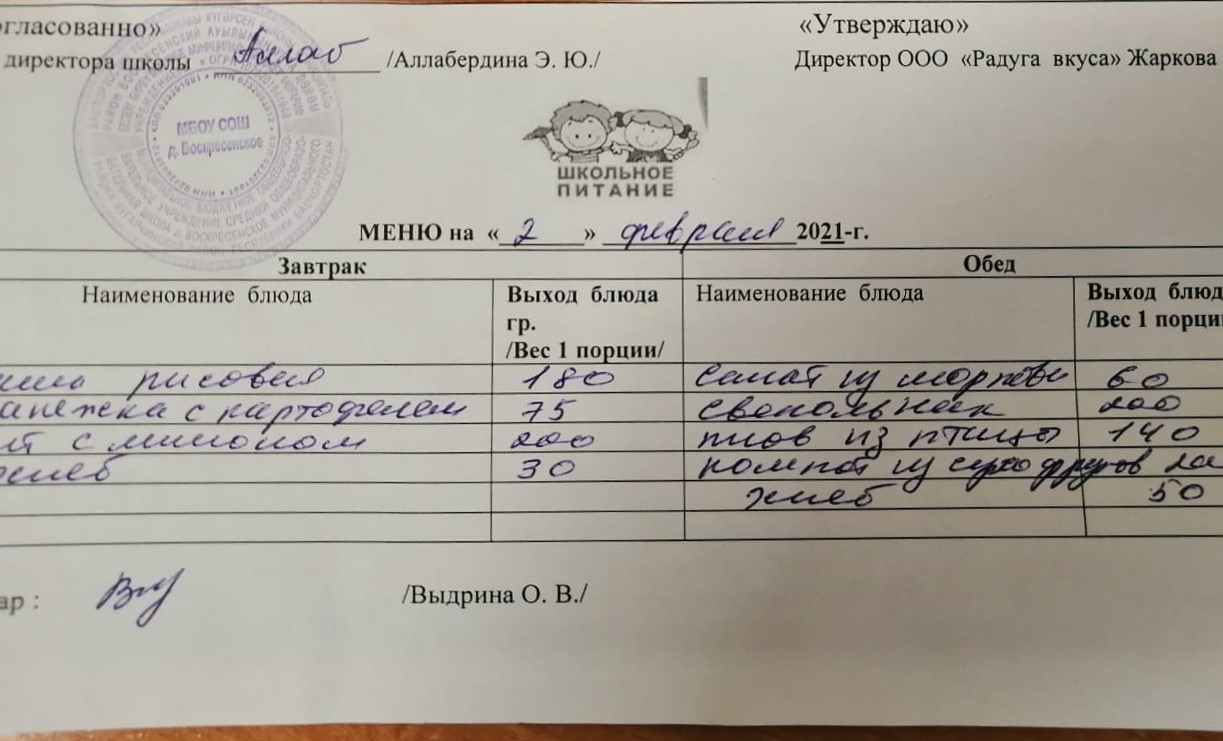 огласованно» «Утверждаю»
директора школы /Аллабердина Э. Ю./ Директор ООО «Радуга вкуса» Жаркова
МБОУ СОШ
д. Воскресенское
ШКОЛЬНОЕ
ПИТАНИЕ
МЕНЮ на « 2 » февраля 2021-г.
Завтрак Обед
Наименование блюда Выход блюда Наименование блюда Выход блюд
гр. /Вес 1 порци
/Вес 1 порции/
аша рисовая 180 салат из моркови 60
анежка с картофелем 75 свекольник 200
с лимоном 200 плов из птицы 140
хлеб 30 компот из сухофруктов 20
хлеб 50
ар : /Выдрина О. В./